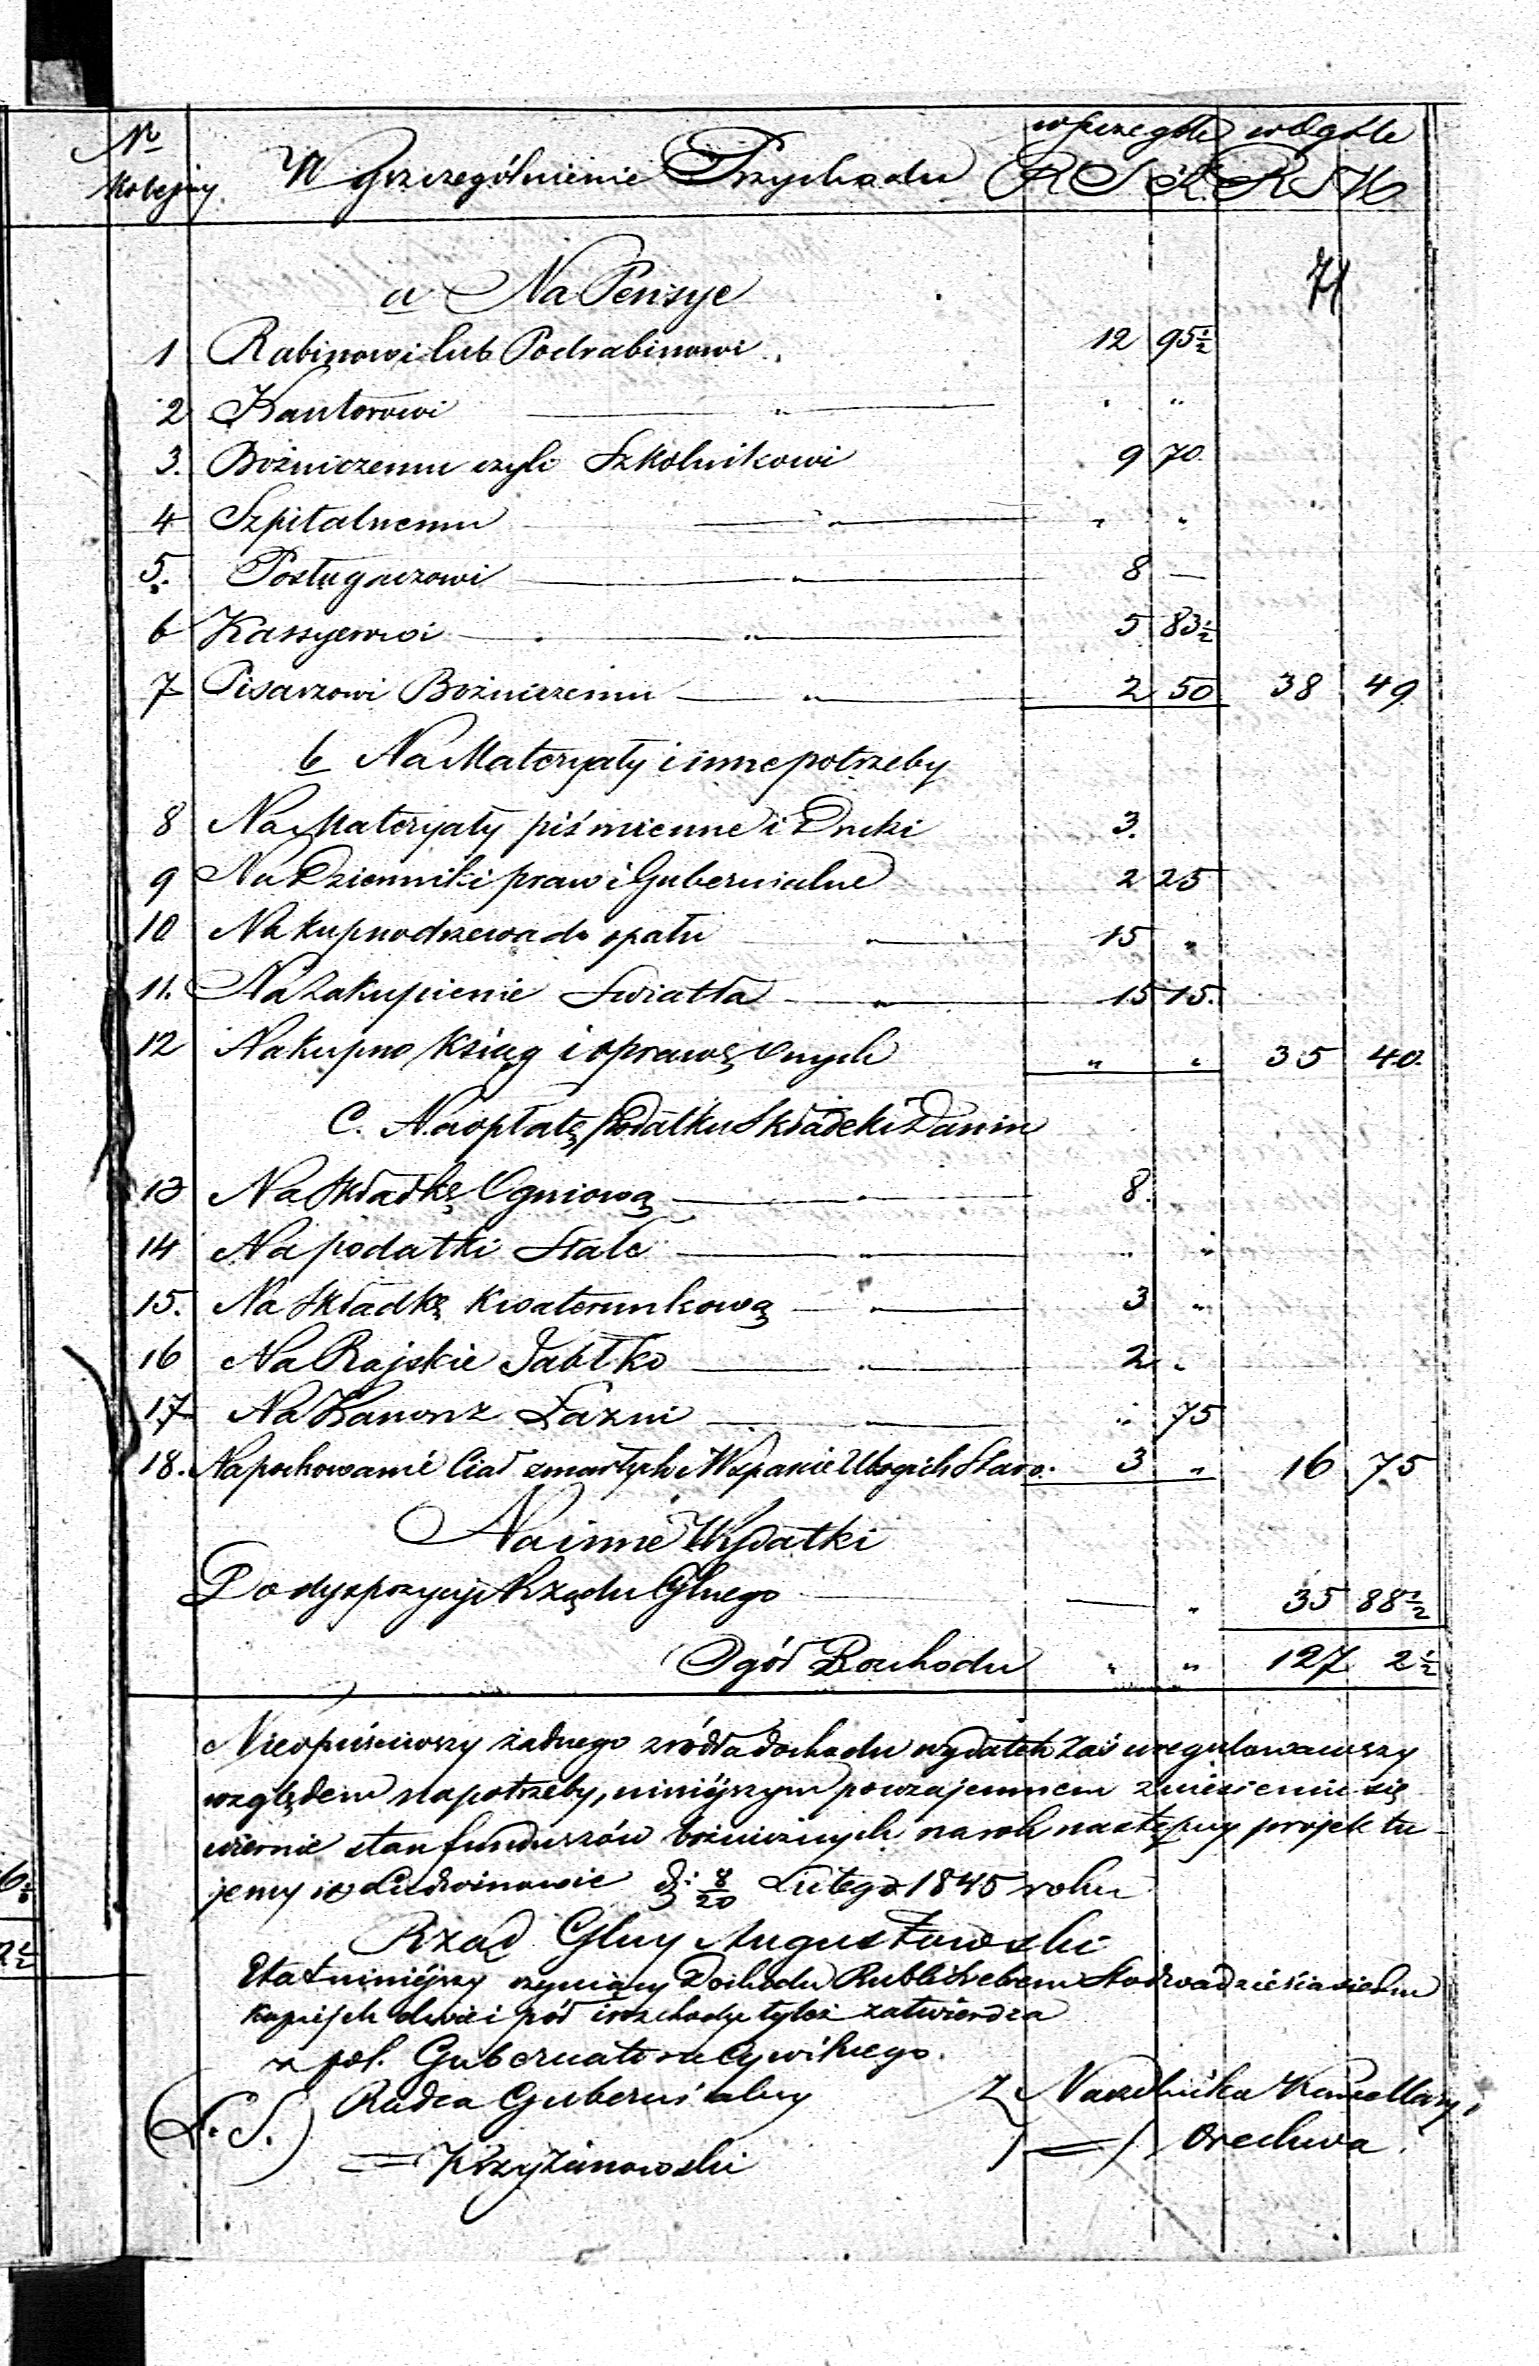 Nr Kolejny Wyszczególnienie Przychodu w szczególe w Ogóle
R S K R S K
71
a Na Pensye
1 Rabinowi lub Podrabinowi 12 95½
2 Kantorowi — " — " "
3. Bożniczemu czyli Szkolnikowi 9 70
4 Szpitalnemu — " — " "
5. Posługaczowi — " — 8 —
6 Kassyerowi — " — 5 83½
7 Pisarzowi Bożniczemu — " — 2 50 38 49
b Na Materyały i inne potrzeby
8 Na Materyały piśmienne i Druki 3.
9 Na Dzienniki praw i Gubernialne 2 25
10 Na kupno drzewa do opału — " — 15 "
11. Na Zakupienie Swiatła — " — 15 15.
12 Na kupno Ksiąg i oprawę Onych " " 35 40.
C. Na opłatę Podatku Składek i Danin
13 Na Składkę Ogniową — " — 8.
14 Na podatki Stałe — " — " "
15. Na Składkę Kwaterunkową — " — 3 "
16 Na Rajskie Jabłko — " — 2 "
17 Na Kanonz Łazni — " — " 75
18. Na pochowanie Ciał zmarłych i Wsparcie Ubogich Staro. 3 " 16 75
Na inne Wydatki
Do dyspozycyi Rządu Gbnego — " 35 88½
Ogół Rozchodu " " 127 2½
Nieopuściwszy żadnego zródła dochodu wydatek Zaś uregulowawszy
względem na potrzeby, niniejszym po wzajemnem zniesieniu się
wiernie stan funduszów bożniczych na rok następny projektu
jemy w Ludwinowie d: 8/20 Lutego 1845 roku
Rząd Gbny Augustowski
Etat niniejszy czyniący Dochodu Rubli Srebrem Sto dwadzieścia siedm
Kopiejek dwie i pół i rozchodu tyleż zatwierdza
w pol. Gubernatora Cywilnego.
Radca Gubernialny Z Naczelnika Kancellaryi
(L. S.) = Krzyżanowski /=/ Orechwa.